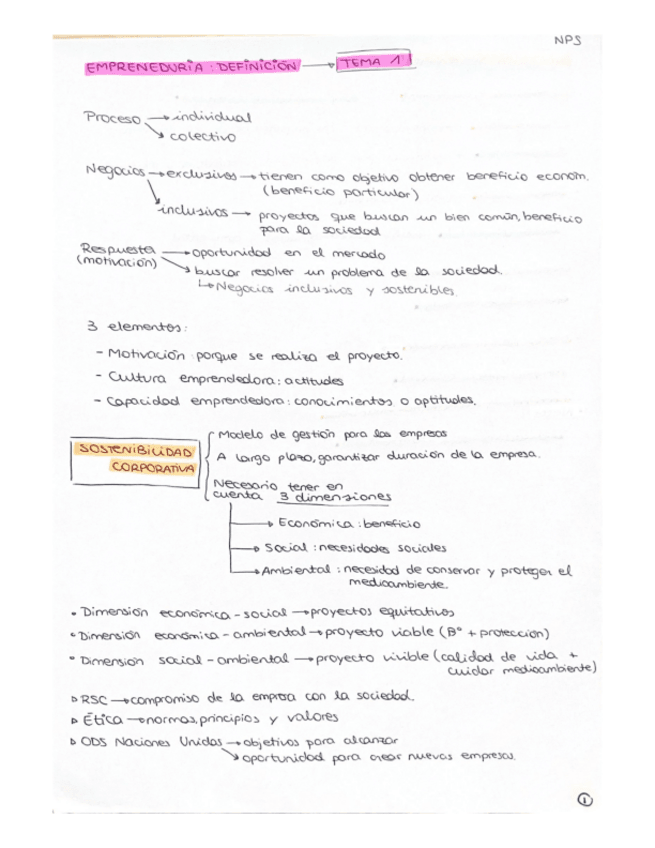 NPS
EMPRENEDURÍA: DEFINICIÓN → TEMA 1
Proceso → individual
↘ colectivo
Negocios → exclusivos → tienen como objetivo obtener beneficio económ.
(beneficio particular)
↘ inclusivos → proyectos que buscan un bien común, beneficio
para la sociedad
Respuesta → oportunidad en el mercado
(motivación) ↘ buscar resolver un problema de la sociedad.
↳ Negocios inclusivos y sostenibles.
3 elementos:
- Motivación porque se realiza el proyecto.
- Cultura emprendedora: actitudes
- Capacidad emprendedora: conocimientos o aptitudes.
SOSTENIBILIDAD
CORPORATIVA
Modelo de gestión para las empresas
A largo plazo, garantizar duración de la empresa.
Necesario tener en
cuenta 3 dimensiones
→ Económica: beneficio
→ Social: necesidades sociales
→ Ambiental: necesidad de conservar y proteger el
medioambiente.
• Dimensión económica - social → proyectos equitativos
• Dimensión económica - ambiental → proyecto viable (Bº + protección)
• Dimensión social - ambiental → proyecto vivible (calidad de vida +
cuidar medioambiente)
▷ RSC → compromiso de la empresa con la sociedad.
▷ Ética → normas, principios y valores
▷ ODS Naciones Unidas → objetivos para alcanzar
↘ oportunidad para crear nuevas empresas.
1